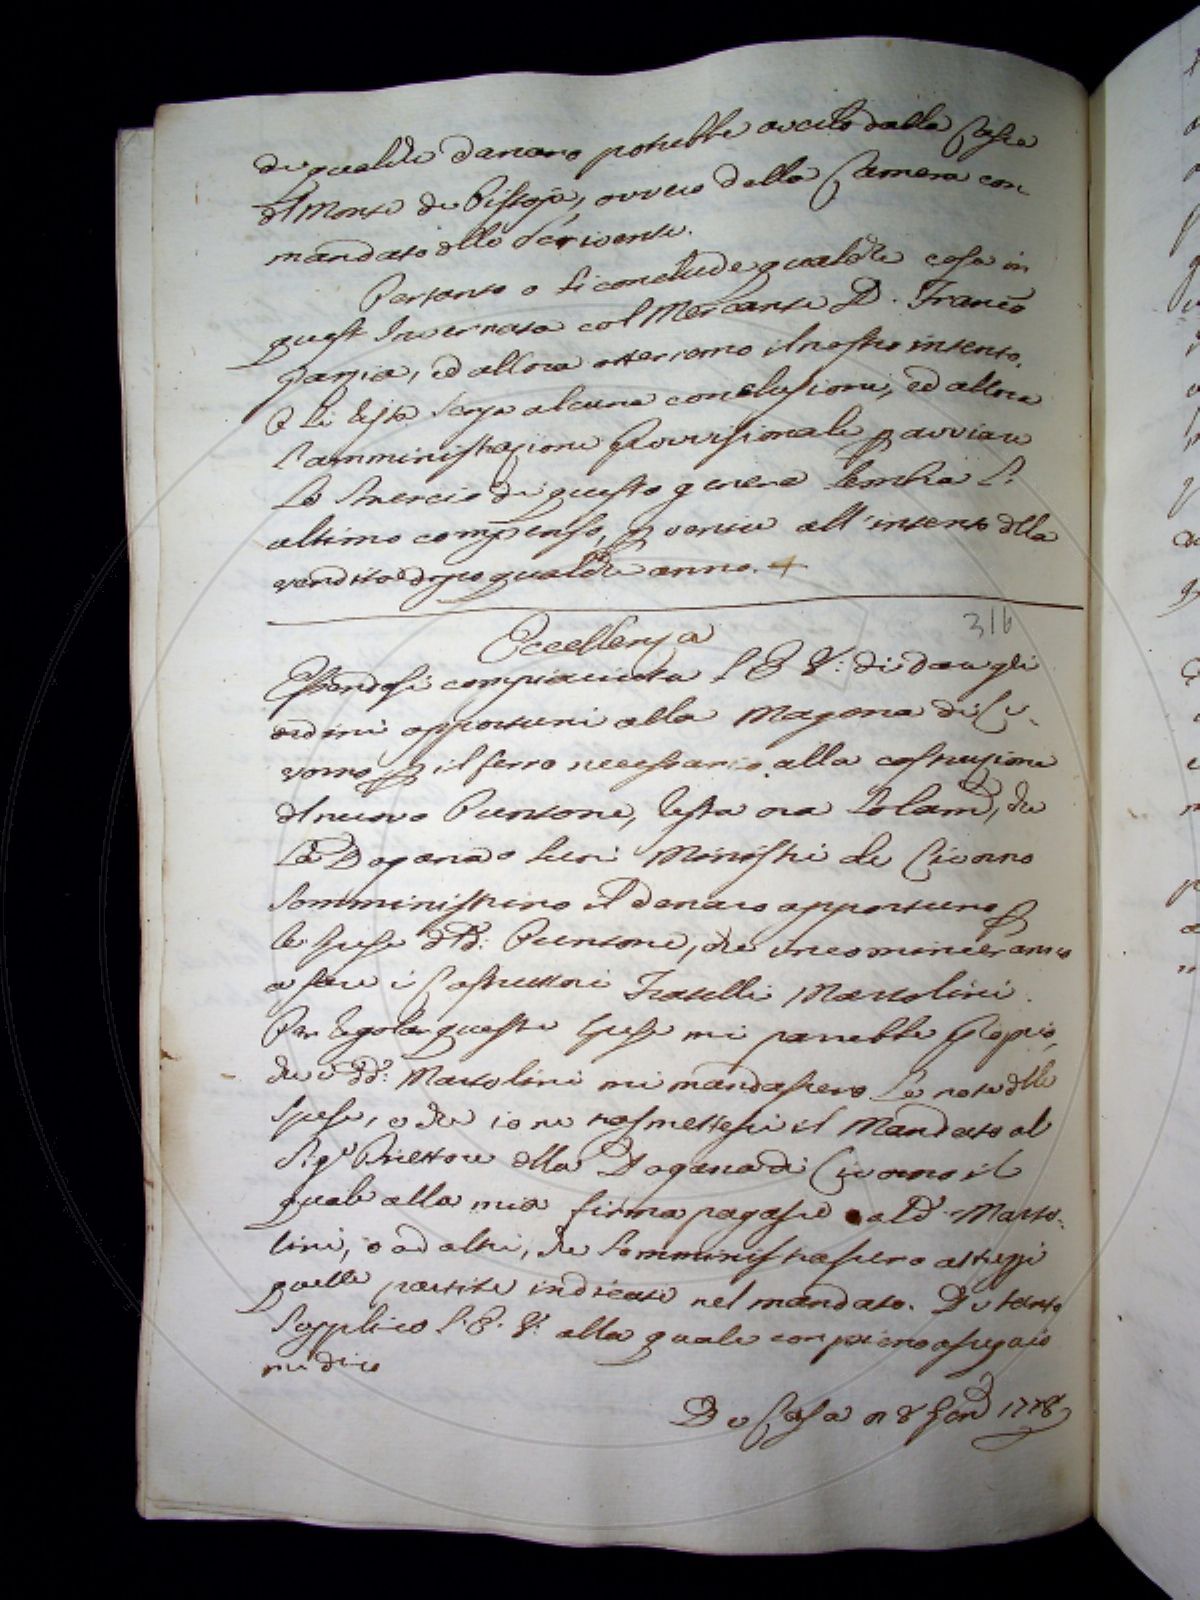 di qualche danaro potrebbe averlo dalla Cassa
del Monte di Pistoja, ovvero dalla Camera con
mandato dello Scrivente.
Pertanto o si conclude qualche cosa in
quest Invernata col Mercante D. Franco
ed allora otterremo il nostro intento,
o si resta senza alcuna conclusione, ed allora
l'amministrazione Provvisionale p avviare
lo smercio di questo genere sembra l'
ultimo compenso, p venire all'intento della
vendita dopo qualche anno. +
316
Eccellenza
Essendosi compiaciuta l'E. V: di dare gli
ordini opportuni alla Magona di Li-
vorno p il ferro necessario alla costruzione
del nuovo Puntone, resta ora solam, che
la Dogana o suoi Ministri di Livorno
somministrino il denaro opportuno p
le spese del d: Puntone, che incominceranno
a fare i Costruttori Fratelli Martolini.
Per regolar queste spese mi parrebbe proprio,
che i dd: Martolini mi mandassero le note delle
spese, e che io ne trasmettessi il Mandato al
Sig. Direttore della Dogana di Livorno il
quale alla mia firma pagasse al d. Marto-
lini, o ad altri, che somministrassero attrezzi
quelle partite indicate nel mandato. Di tanto
supplico l'E. V. alla quale con pieno ossequio
mi dico
Di Casa 8 Gen 1778